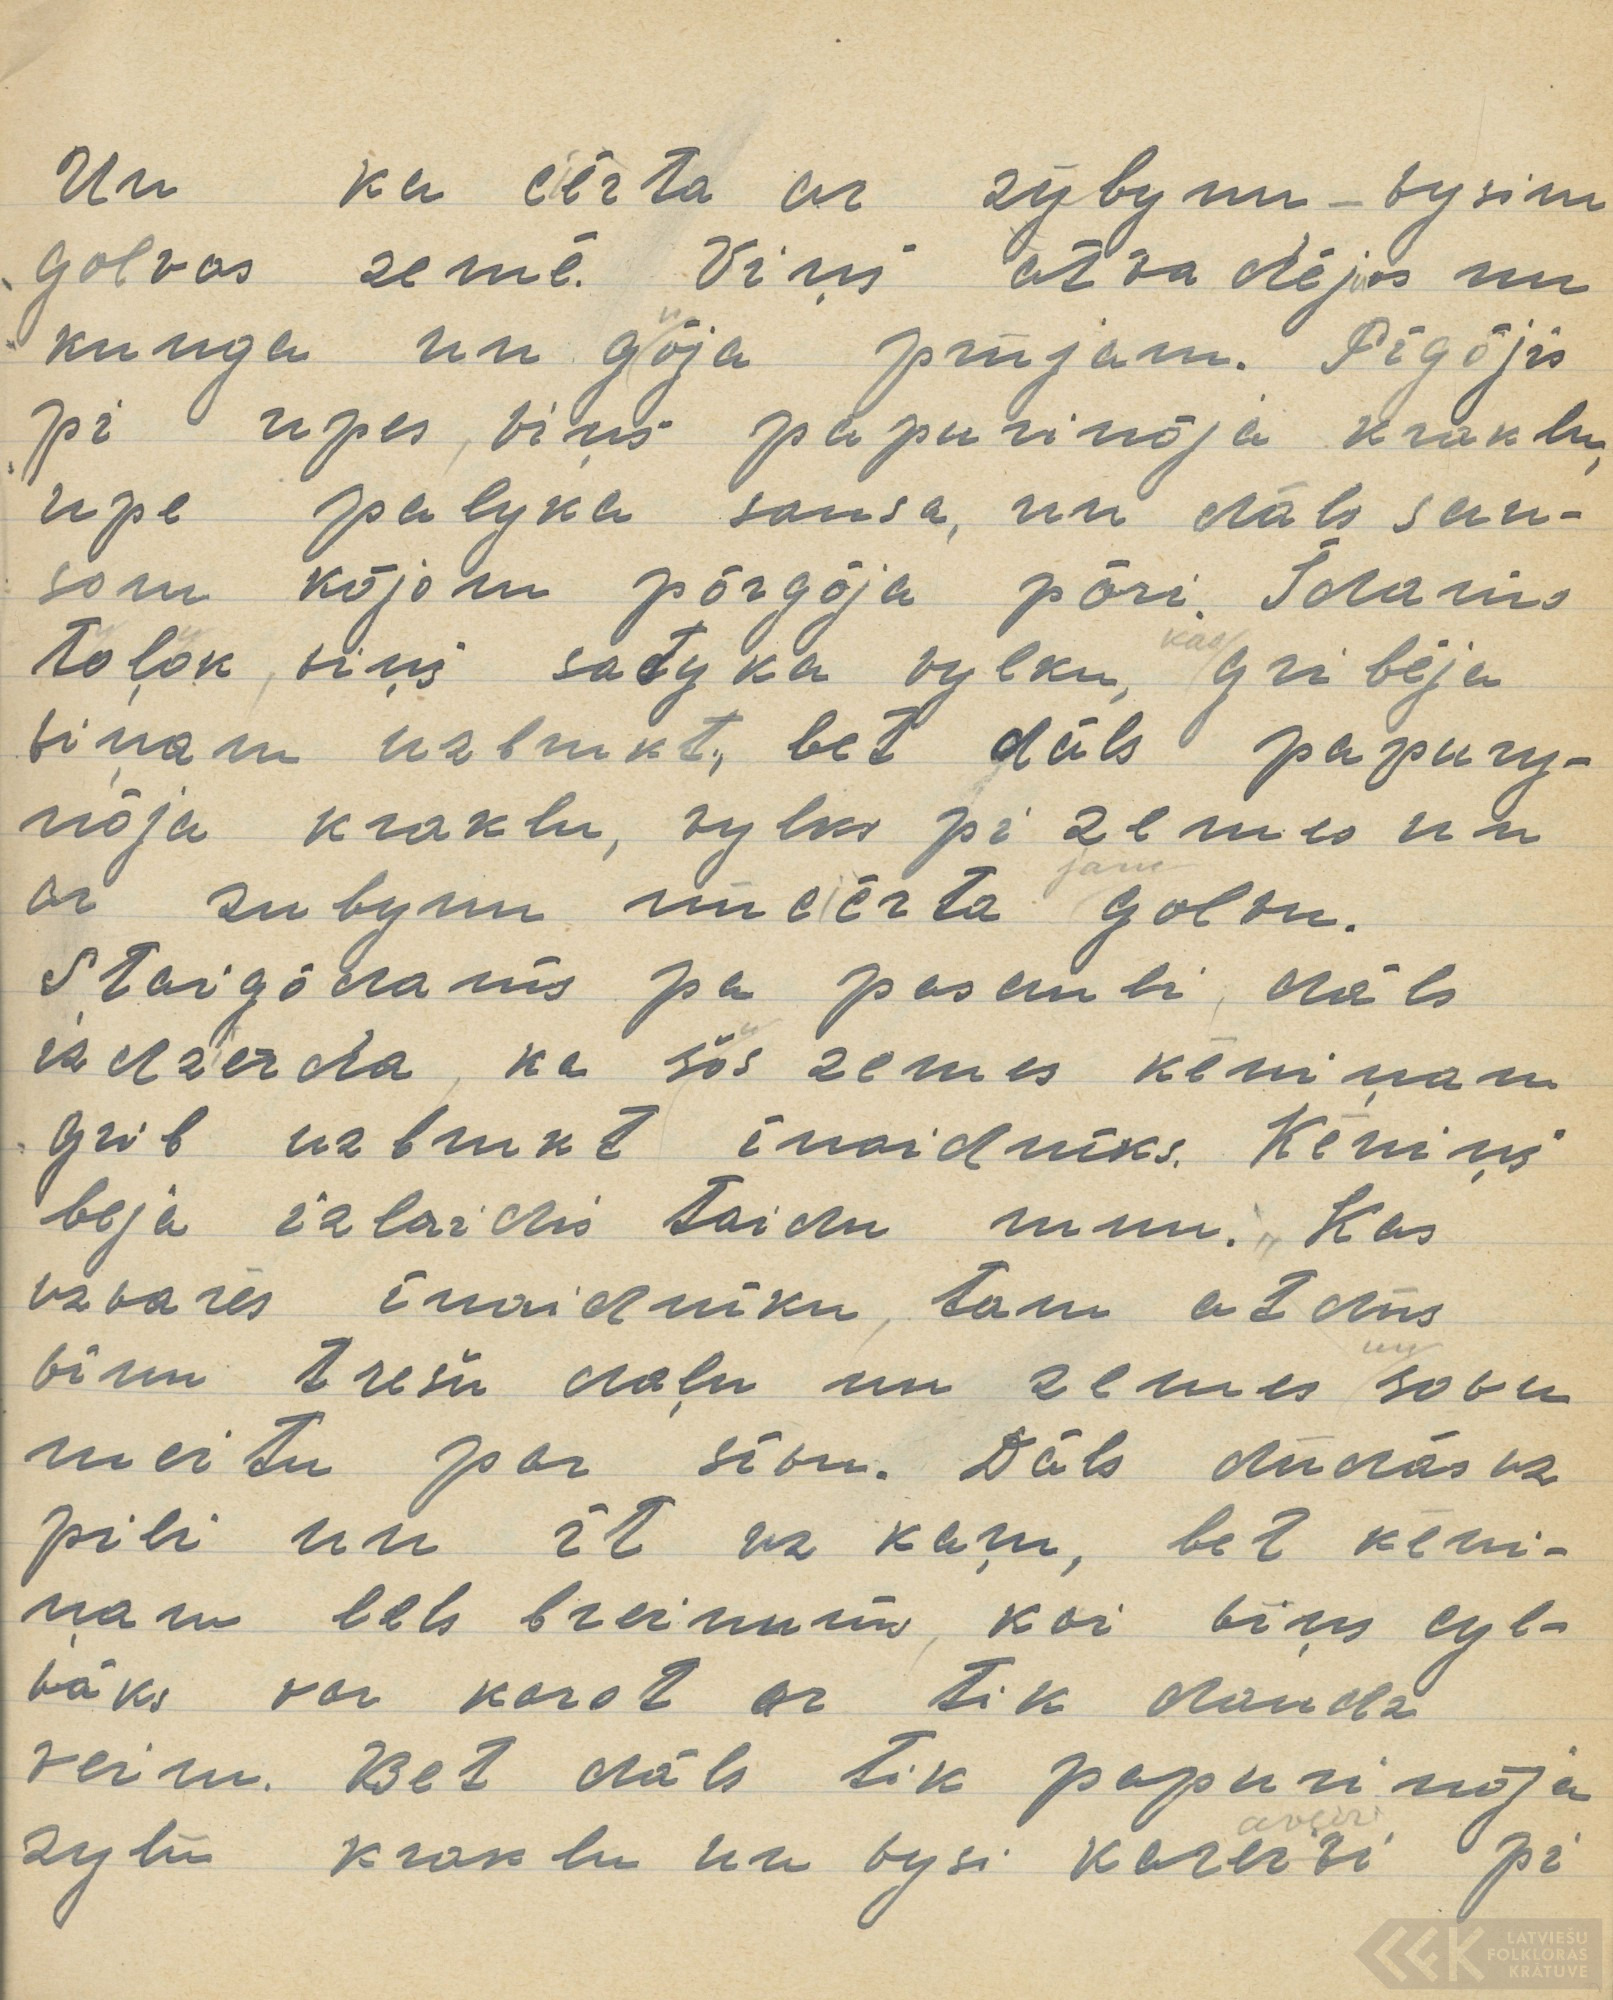 Un ka cērta ar zybynu – vysim
golvas zemē. Viņš atvadējos nu
kunga un gōja prūjam. Pīgōjis
pi upes, viņš papurinōja kraklu,
upe palyka sausa, un dāls sau-
som kōjom pōrgōja pōri. Īdams
toļok, viņš satyka vylku, kas gribēja
viņam uzbrukt, bet dāls papury-
nōja kraklu, vylks pi zemes un
ar zubynu nūcērta jam golvu.
Staigōdams pa pasauli, dāls
izdzerda, ka šōs zemes kēniņam
grib uzbrukt īnaidnīks. Kēniņš
beja izlaidis taidu runu. „Kas
uzvarēs īnaidnīku, tam atdūs
vīnu trešū daļu nu zemes un sovu
meitu par sīvu. Dāls dūdās uz
pili un īt uz karu, bet kēni-
ņam lels breinums, kai vīns cyl-
vāks var karot ar tik daudz
veiru. Bet dāls tik papurinōja
zylū kraklu un vysi kareivi pi
LATVIEŠU
FOLKLORAS
KRĀTUVE